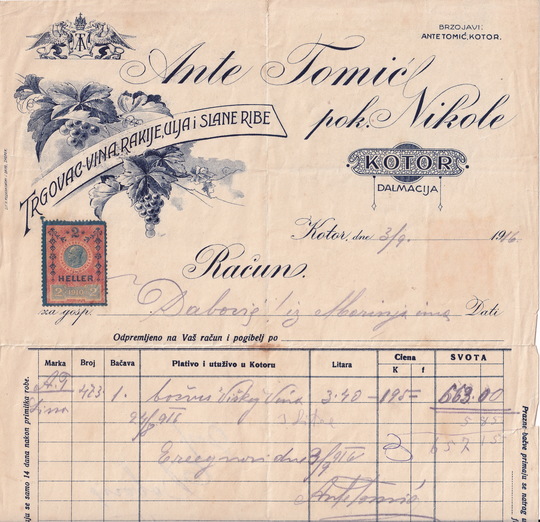 BRZOJAVI:
ANTE TOMIĆ, KOTOR.
Ante Tomić
pok. Nikole
TRGOVAC-VINA, RAKIJE, ULJA i SLANE RIBE
KOTOR
DALMACIJA
Kotor, dne 3/9. 1916.
Račun
2
HELLER
za gosp. Dabović iz Morinja ima Dati
Odpremljeno na Vaš račun i pogibelj po
Marka Broj Bačava Plativo i utuživo u Kotoru Litara Ciena K f SVOTA
A.T. 473 1. Viškog Vina 3·40 195 = 663.00
24/8 916
657 15
Ercegnovi dne 3/9 916
Ante Tomić
se samo 14 dana nakon primitka robe.
Prazne bačve primaju se natrag